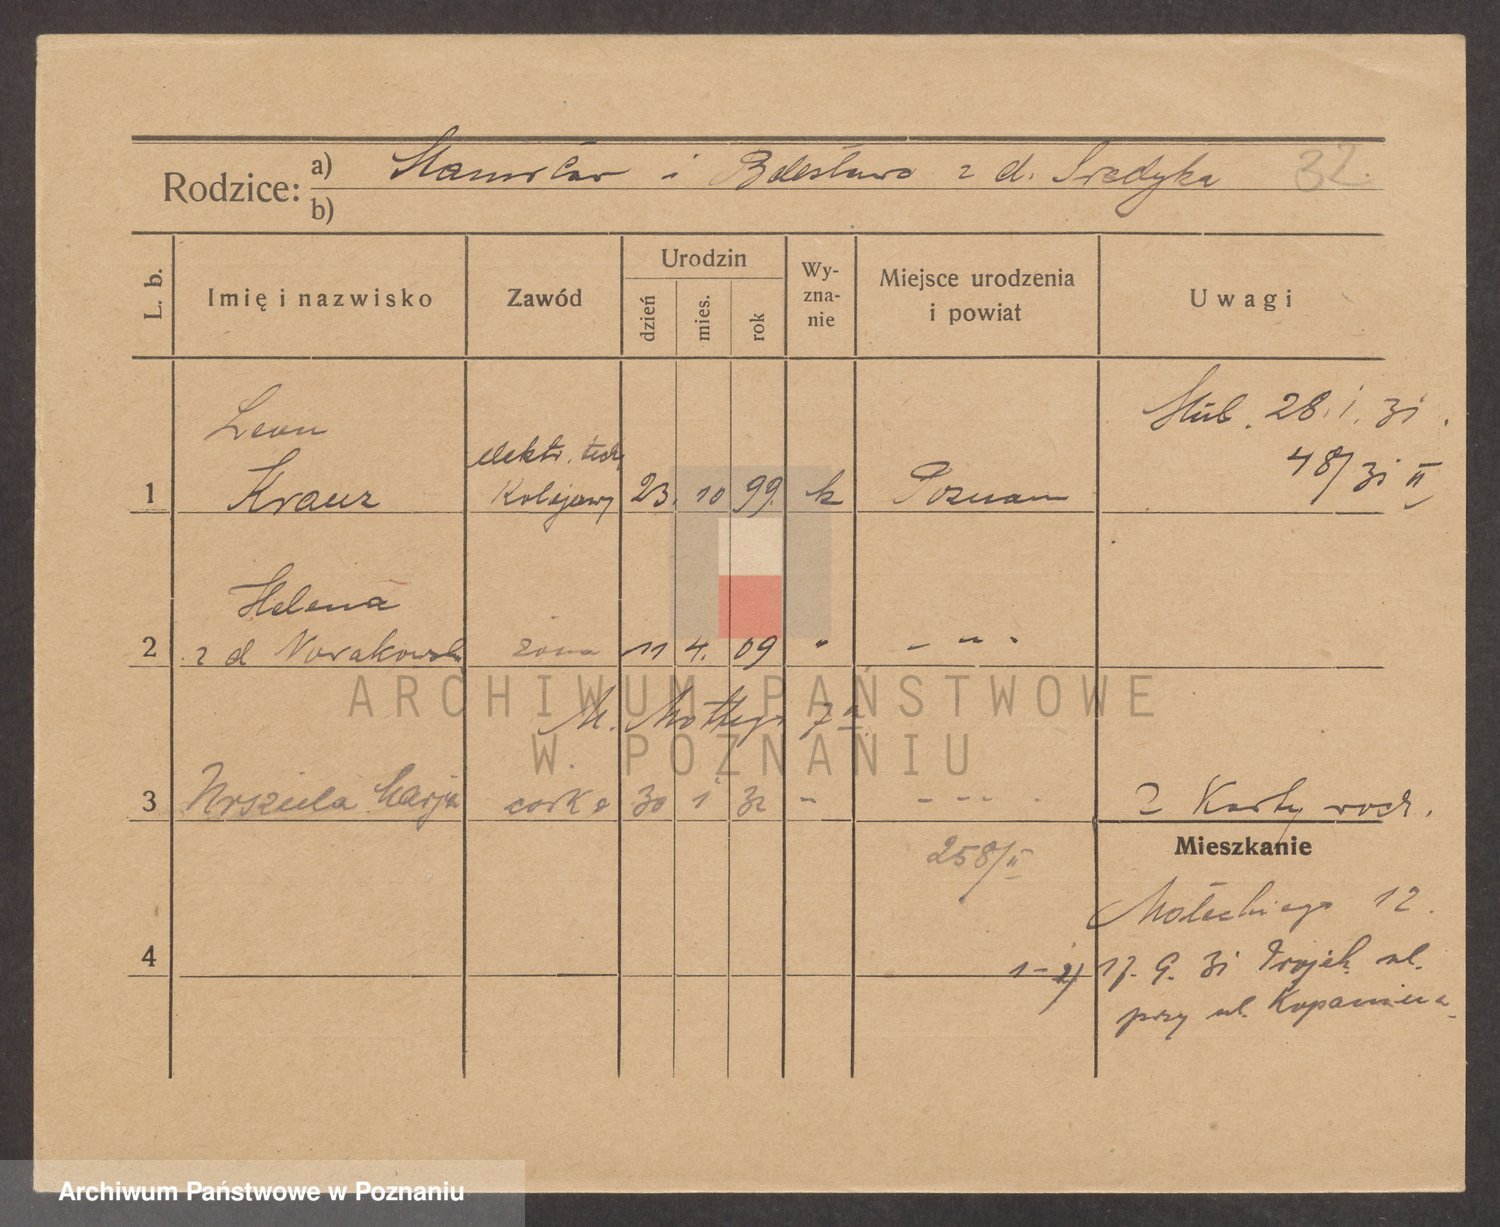 Rodzice: a) Stanisław i Bolesława z d. Sredzka 32.
b)
L. b.
Imię i nazwisko
Zawód
Urodzin
dzień
mies.
rok
Wy-
zna-
nie
Miejsce urodzenia
i powiat
Uwagi
Leon
elektr. tech.
ślub. 28. i. 31.
48/31 II
1 Krauz Kolejowy 23. 10 99. k Poznań
Helena
2 z d Nowakowska żona 11 4. 09 " - " -
M. Mottego 7a
3 Urszula Marja córka 30 i 32 - - - - -
2 Karty rodz.
Mieszkanie
258/II
Małeckiego 12.
4
1-2) 17. 9. 31 Projek. ul.
przy ul. Kopanina
ARCHIWUM PAŃSTWOWE
W POZNANIU
Archiwum Państwowe w Poznaniu